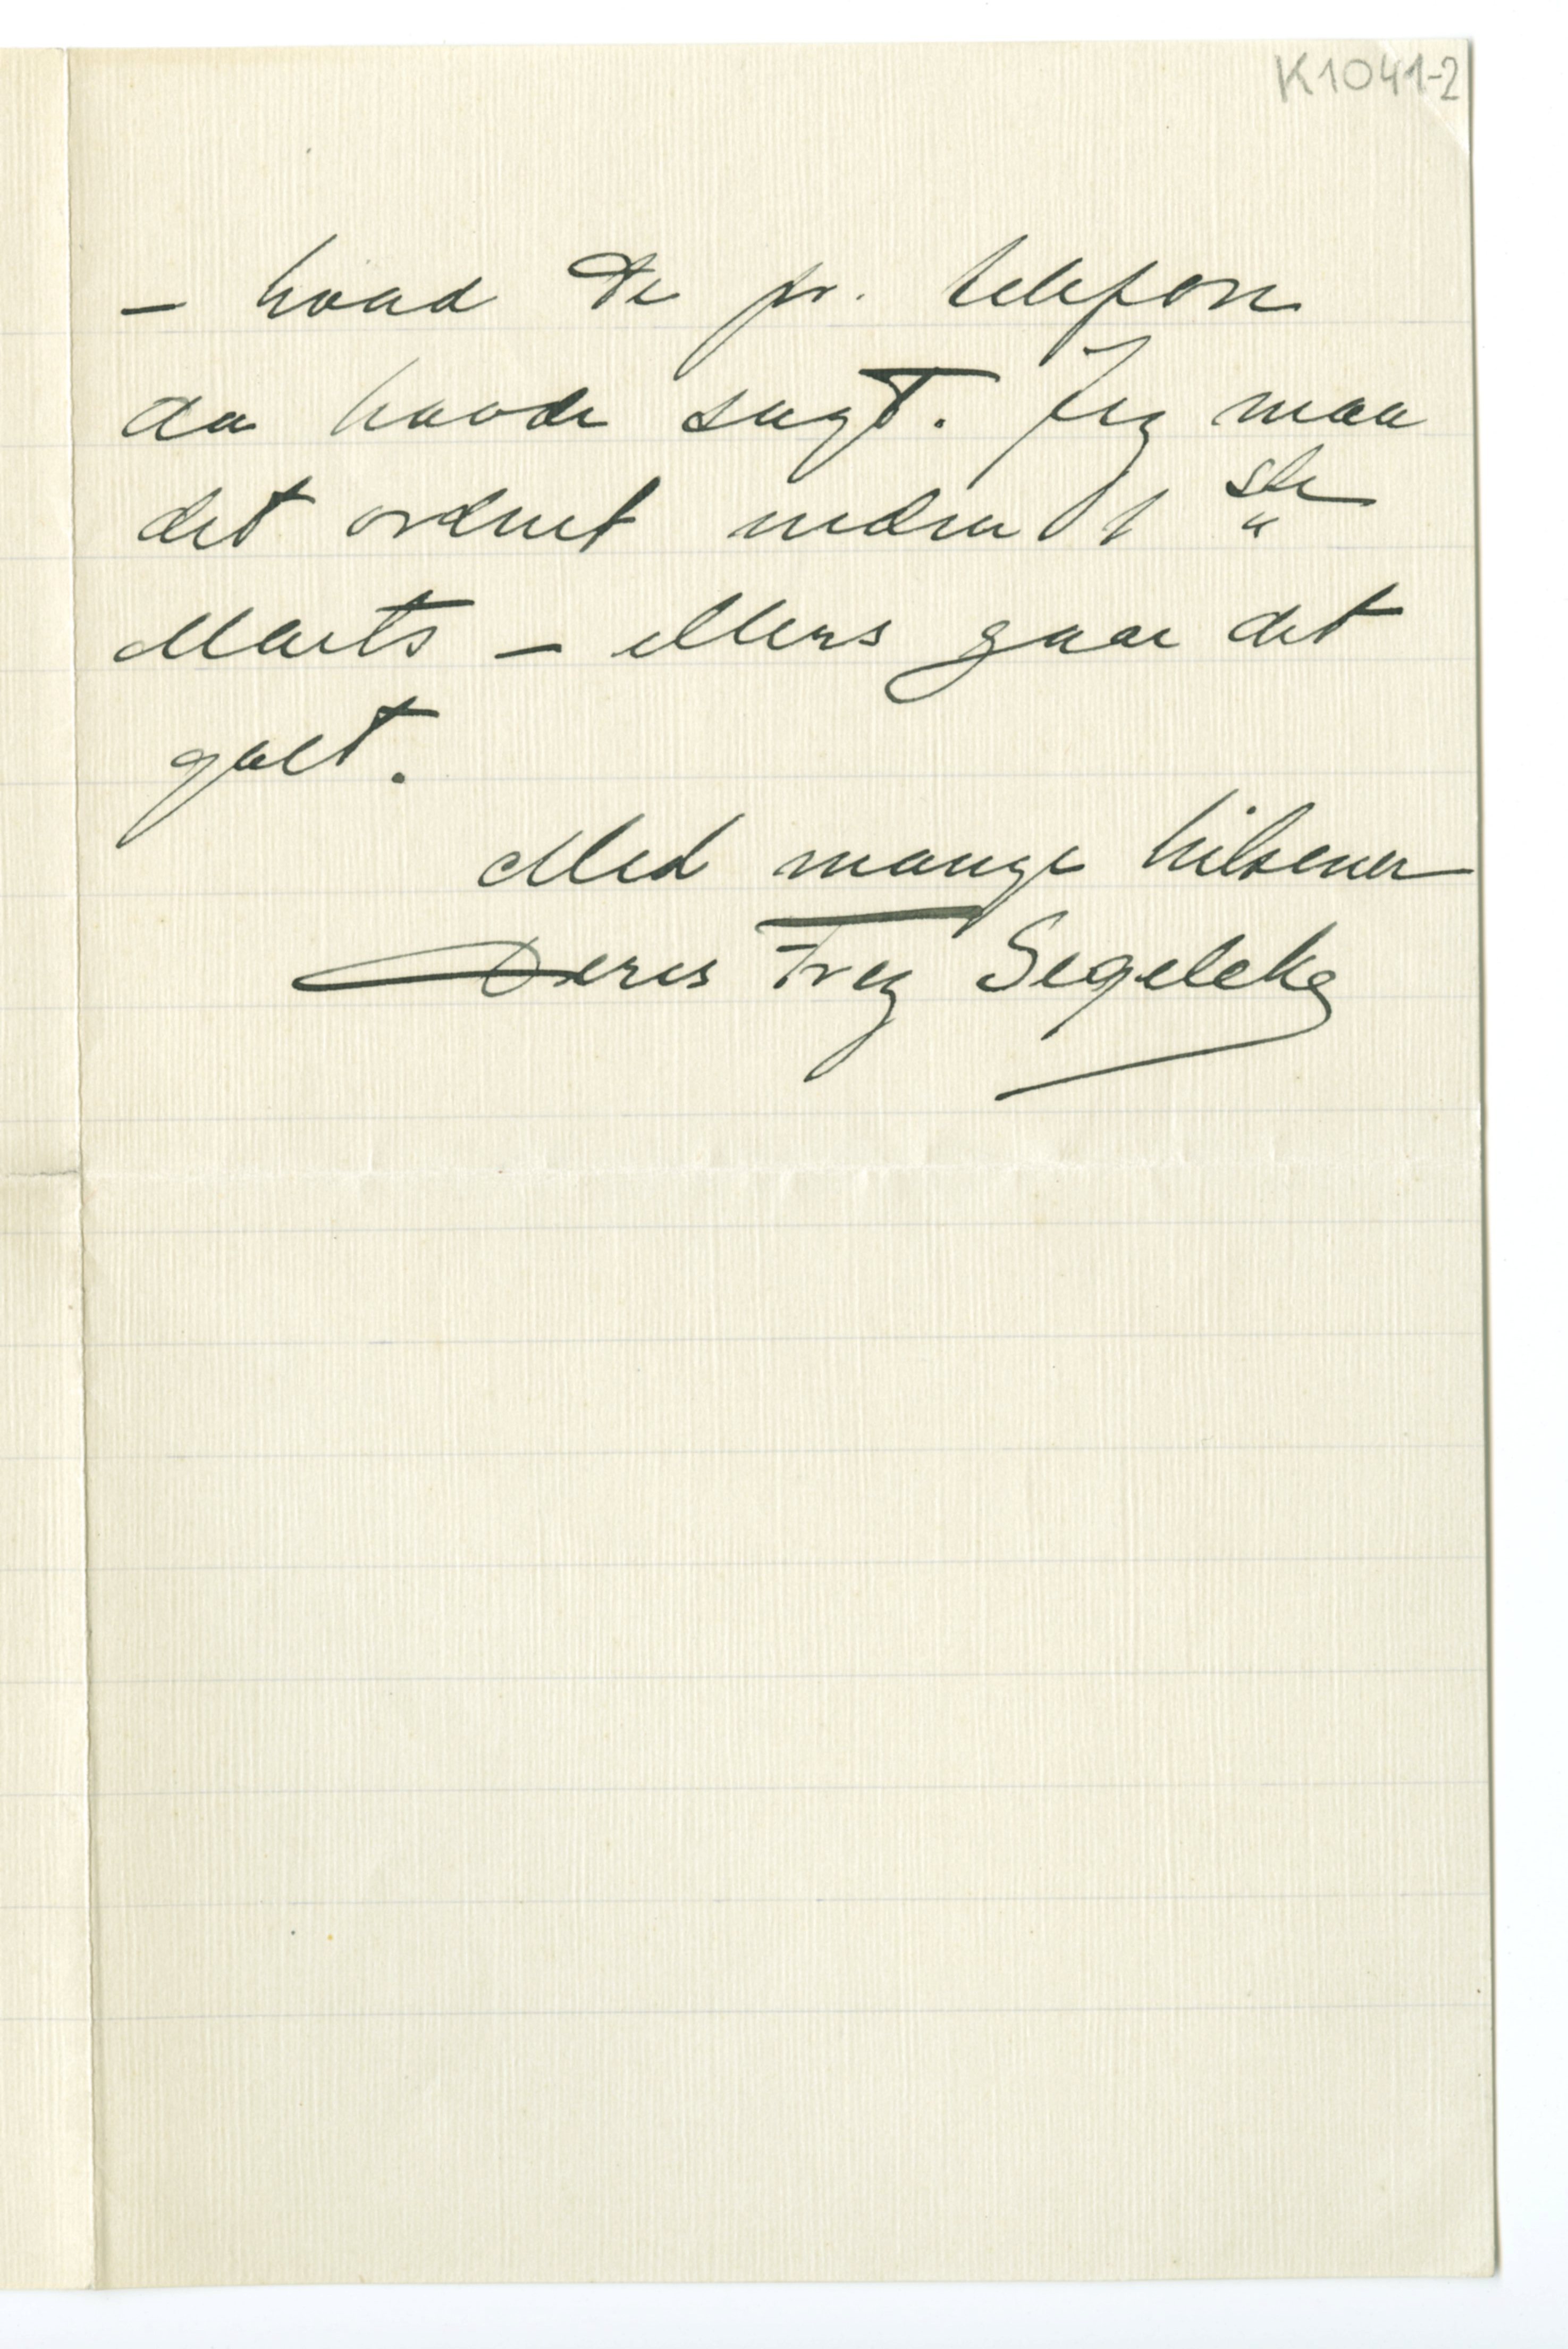 K1041-2
– hvad De pr. telefon
da havde sagt. Jeg maa
det ordnet inden 1ste
Marts – ellers gaar det
galt.
Med mange hilsener
Deres Frey Segelcke